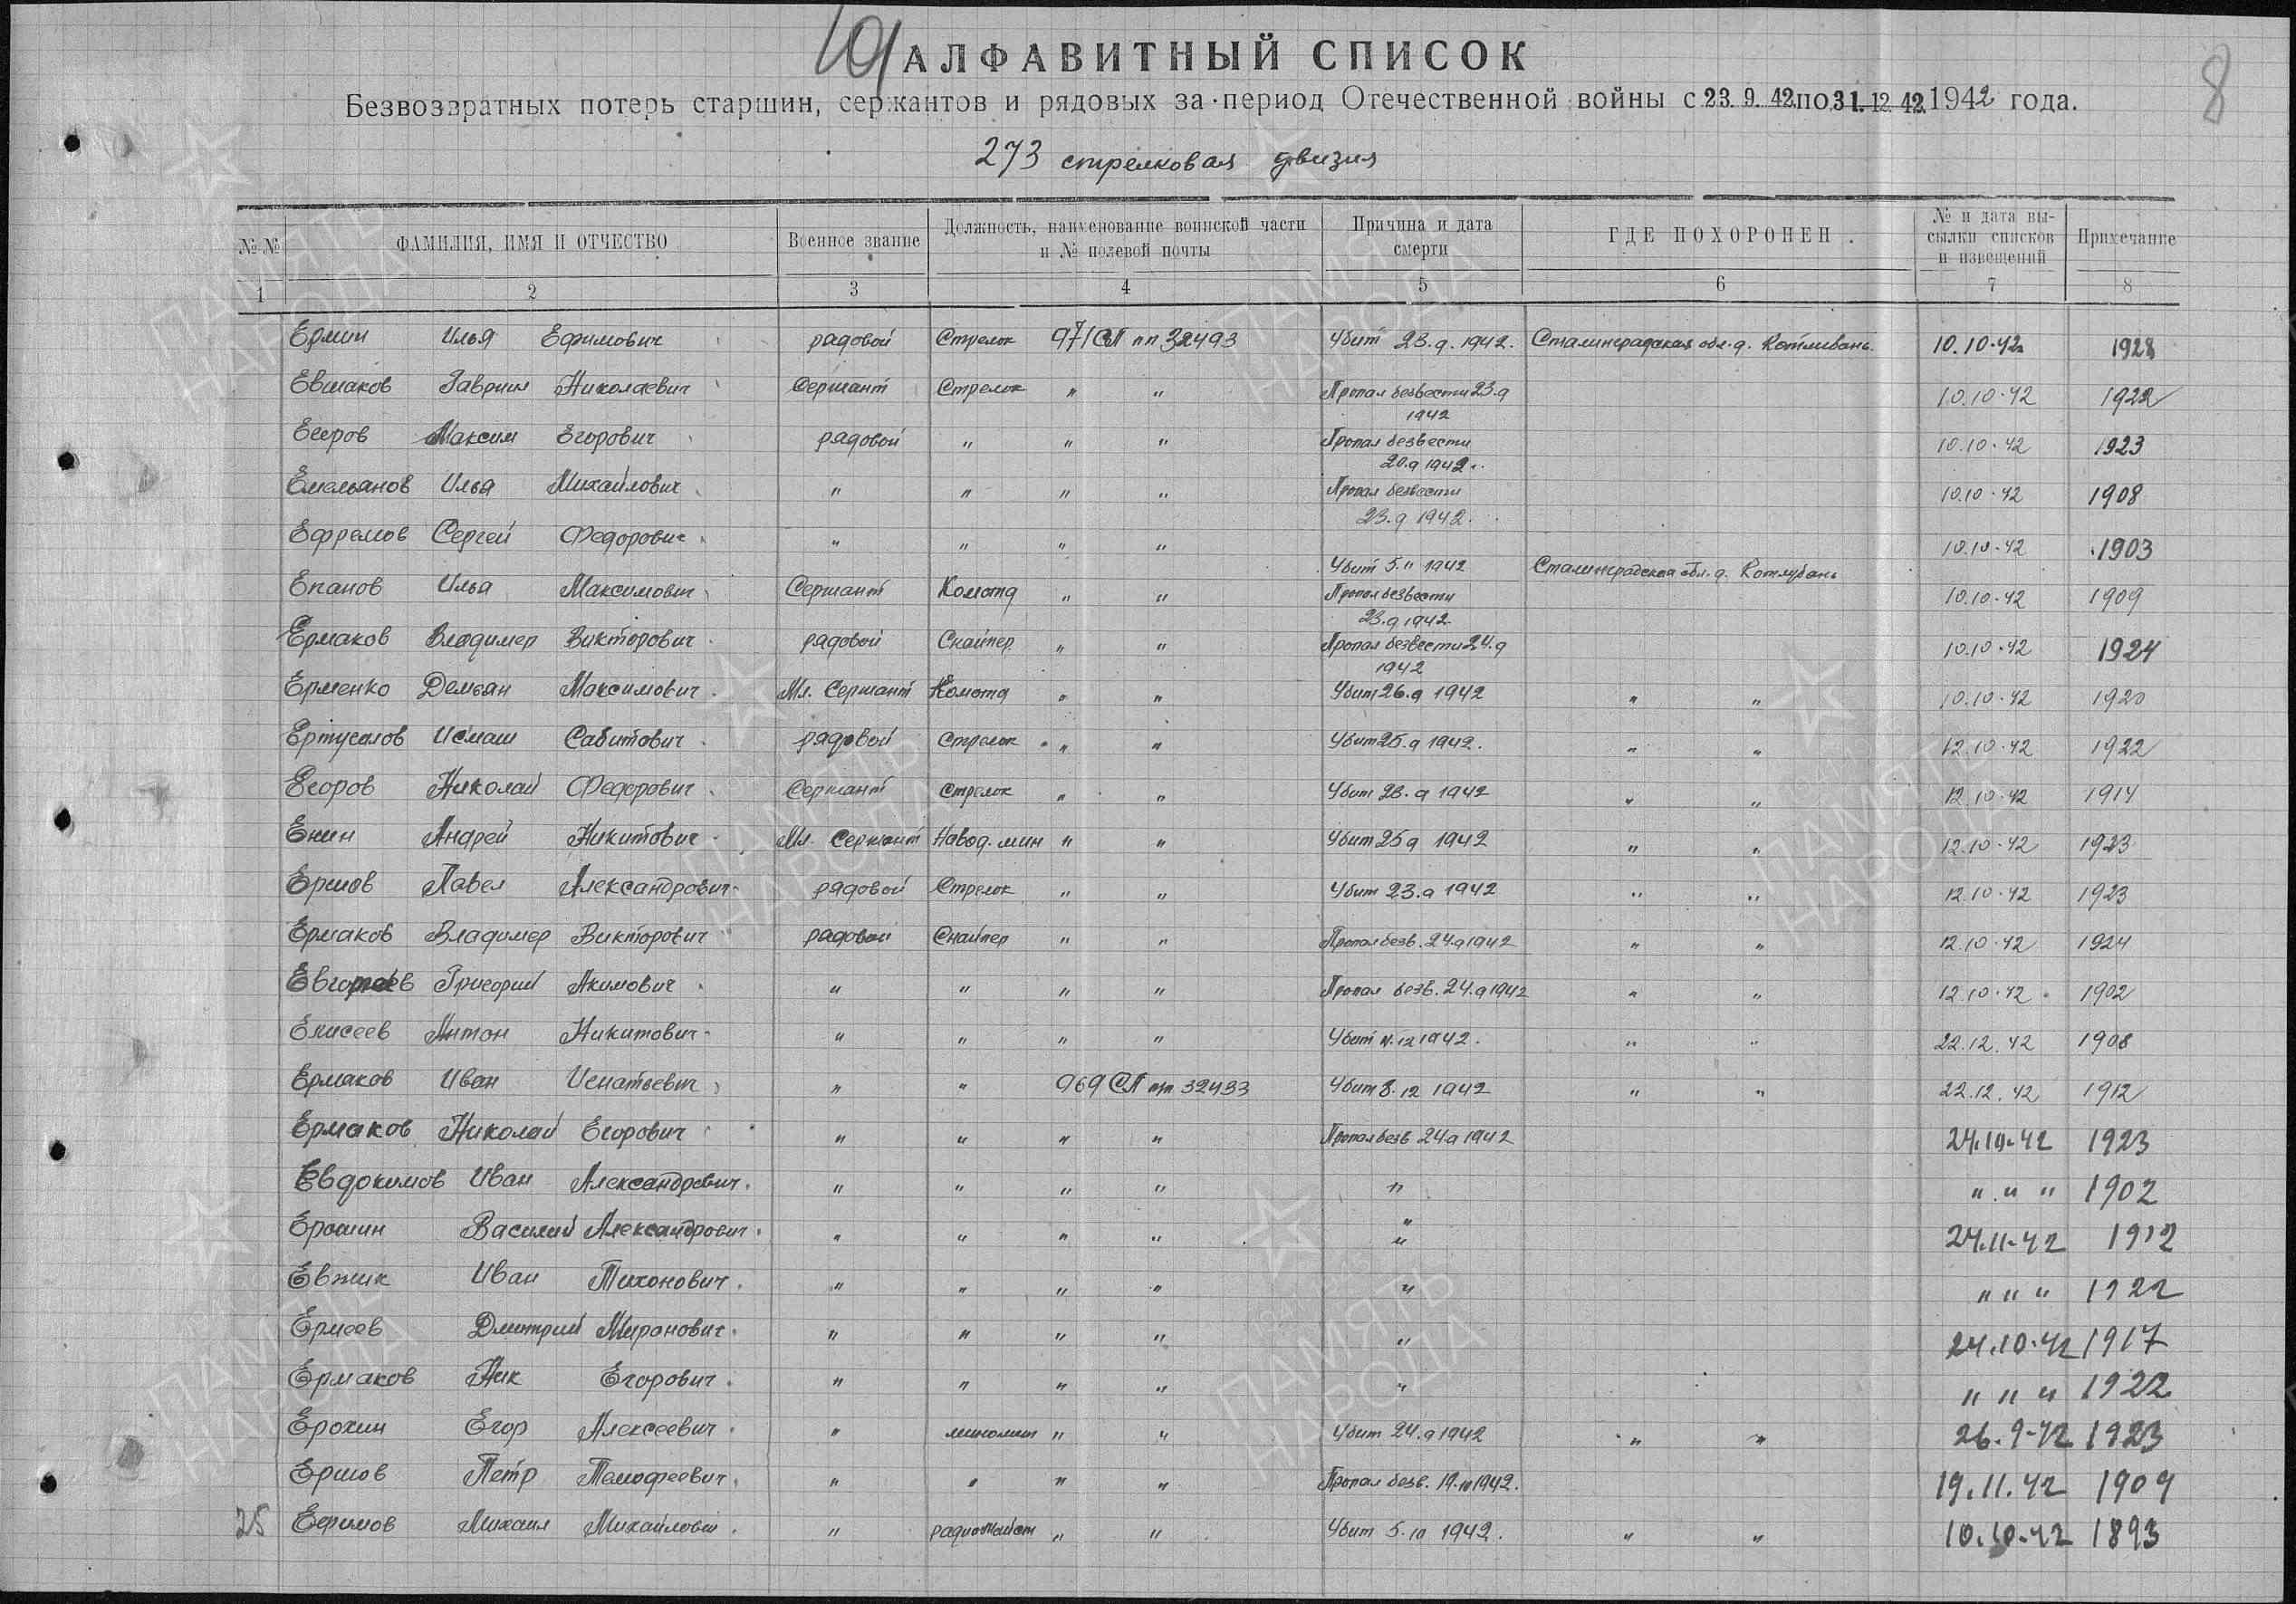 101 АЛФАВИТНЫЙ СПИСОК
8
Безвозвратных потерь старшин, сержантов и рядовых за период Отечественной войны с 23. 9. 42 по 31. 12. 42. 1942 года.
273 стрелковая дивизия
№№ ФАМИЛИЯ, ИМЯ И ОТЧЕСТВО Военное звание Должность, наименование воинской части и № полевой почты Причина и дата смерти ГДЕ ПОХОРОНЕН. № и дата высылки списков и извещений Примечание
1 2 3 4 5 6 7 8
Ермин Илья Ефимович рядовой Стрелок 971 СП пп 32493 Убит 23.9.1942. Сталинградская обл. д. Котлубань 10.10.42 1923
Евшаков Гавриил Николаевич Сержант Стрелок " " Пропал безвести 23.9 1942 10.10.42 1922
Егоров Максим Егорович рядовой " " " Пропал безвести 20.9 1942 10.10.42 1923
Емельянов Илья Михайлович " " " " Пропал безвести 23.9 1942. 10.10.42 1908
Ефремов Сергей Федорович " " " " Убит 5.11 1942 Сталинградская обл. д. Котлубань 10.10.42 1903
Епанов Илья Максимович Сержант Комотд " " Пропал безвести 23.9 1942 10.10.42 1909
Ермаков Владимер Викторович рядовой Снайпер " " Пропал безвести 24.9 1942 10.10.42 1924
Ерменко Демьян Максимович Мл. Сержант Комотд " " Убит 26.9 1942 " " 10.10.42 1920
Ертусалов Исмаш Сабитович рядовой Стрелок " " Убит 25.9 1942. " " 12.10.42 1922
Егоров Николай Федорович Сержант Стрелок " " Убит 23.9 1942 " " 12.10.42 1914
Енин Андрей Никитович Мл. Сержант Навод. мин " " Убит 25 9 1942 " " 12.10.42 1923
Ершов Павел Александрович рядовой Стрелок " " Убит 23.9 1942 " " 12.10.42 1923
Ермаков Владимер Викторович рядовой Снайпер " " Пропал безв. 24.9 1942 " " 12.10.42 1924
Григорий Акимович " " " " Пропал безв. 24.9 1942 " " 12.10.42 1902
Елисеев Антон Никитович " " " " Убит 12 1942. " " 22.12.42 1908
Ермаков Иван Игнатьевич " " 969 СП пп 32433 Убит 8.12 1942 " " 22.12.42 1912
Ермаков Николай Егорович " " " " Пропал безв 24.9 1942 24.10.42 1923
Евдокимов Иван Александрович. " " " " " " " " 1902
Ерошин Василий Александрович. " " " " " " 24.11.42 1912
Евжик Иван Тихонович. " " " " " " " " 1922
Ермеев Дмитрий Миронович. " " " " " 24.10.42 1917
Ермаков Ник Егорович. " " " " " " " " 1922
Ерохин Егор Алексеевич. " миномет " " Убит 24.9 1942 " " 26.9.42 1923
Ершов Петр Темофеевич. " " " " Пропал безв. 19.11 1942. 19.11.42 1909
25 Ефимов Михаил Михайлович. " " " Убит 5.10 1942. " " 10.10.42 1893